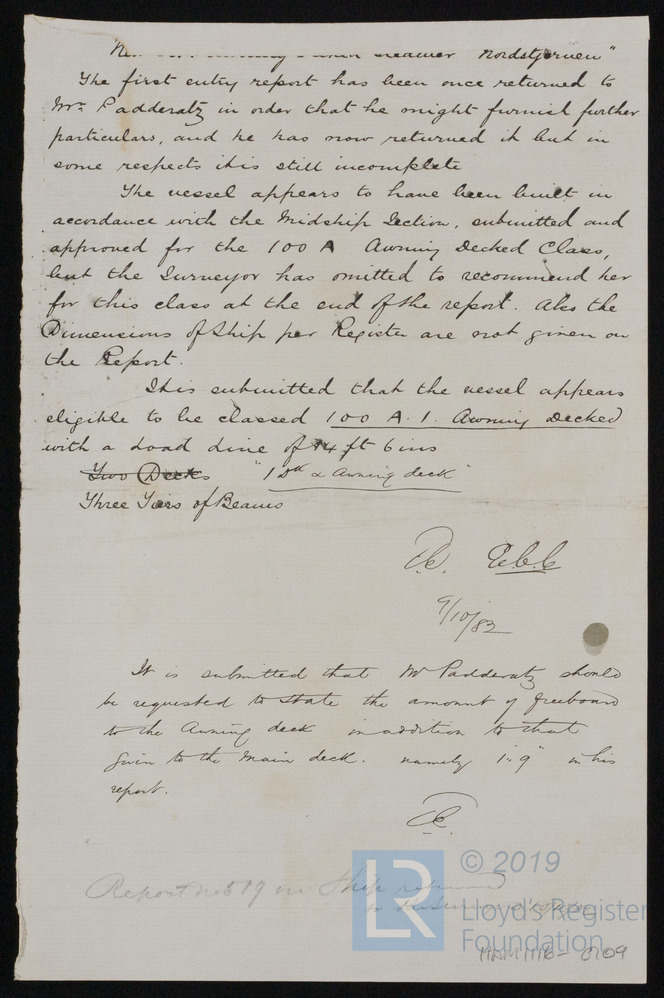 steamer "Nordstjernen"
The first entry report has been once returned to
Mr. Padderatz in order that he might furnish further
particulars, and he has now returned it but in
some respects it is still incomplete
The vessel appears to have been built in
accordance with the Midship Section, submitted and
approved for the 100 A Awning Decked Class,
but the Surveyor has omitted to recommend her
for this class at the end of the report. Also the
Dimensions of Ship per Register are not given on
the Report.
It is submitted that the vessel appears
eligible to be classed 100 A. 1. Awning Decked
with a Load Line of 14 ft 6 ins
Two Decks "1 Dk & Awning deck"
Three Tiers of Beams
9/10/82
It is submitted that Mr Padderatz should
be requested to state the amount of freeboard
to the Awning deck in addition to that
given to the main deck. namely 1'.9" in his
report.
Report No 519 on Ship returned
LR
© 2019
Lloyd's Register
Foundation